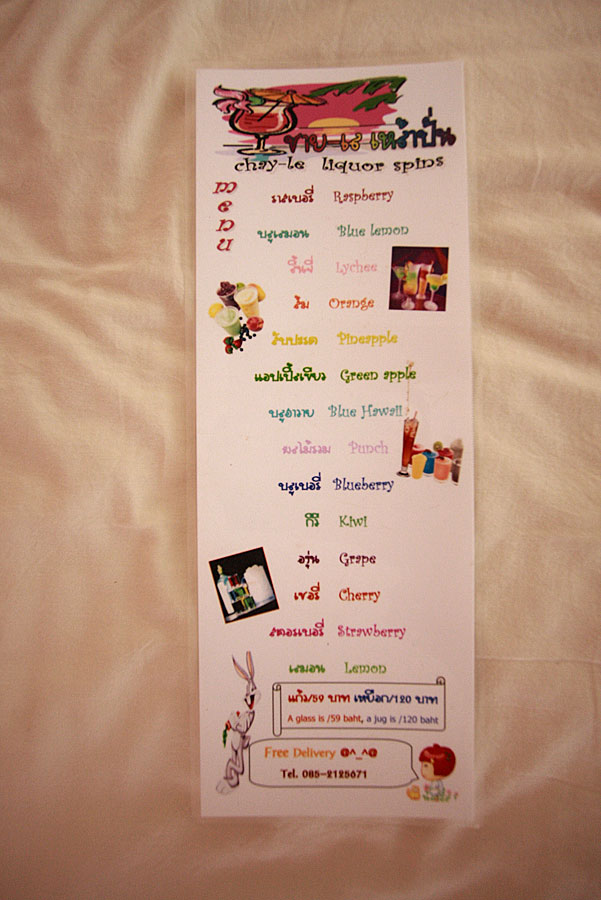 ชาย-เล เหล้าปั่น
chay-le liquor spins
menu
ราสเบอรี่ Raspberry
บลูเลมอน Blue lemon
ลิ้นจี่ Lychee
ส้ม Orange
สับปะรด Pineapple
แอปเปิ้ลเขียว Green apple
บลูฮาวาย Blue Hawaii
ผลไม้รวม Punch
บลูเบอรี่ Blueberry
กีวี Kiwi
องุ่น Grape
เชอรี่ Cherry
สตอเบอรี่ Strawberry
เลมอน Lemon
แก้ว/59 บาท เหยือก/120 บาท
A glass is /59 baht, a jug is /120 baht
Free Delivery @^_^@
Tel. 085-2125671